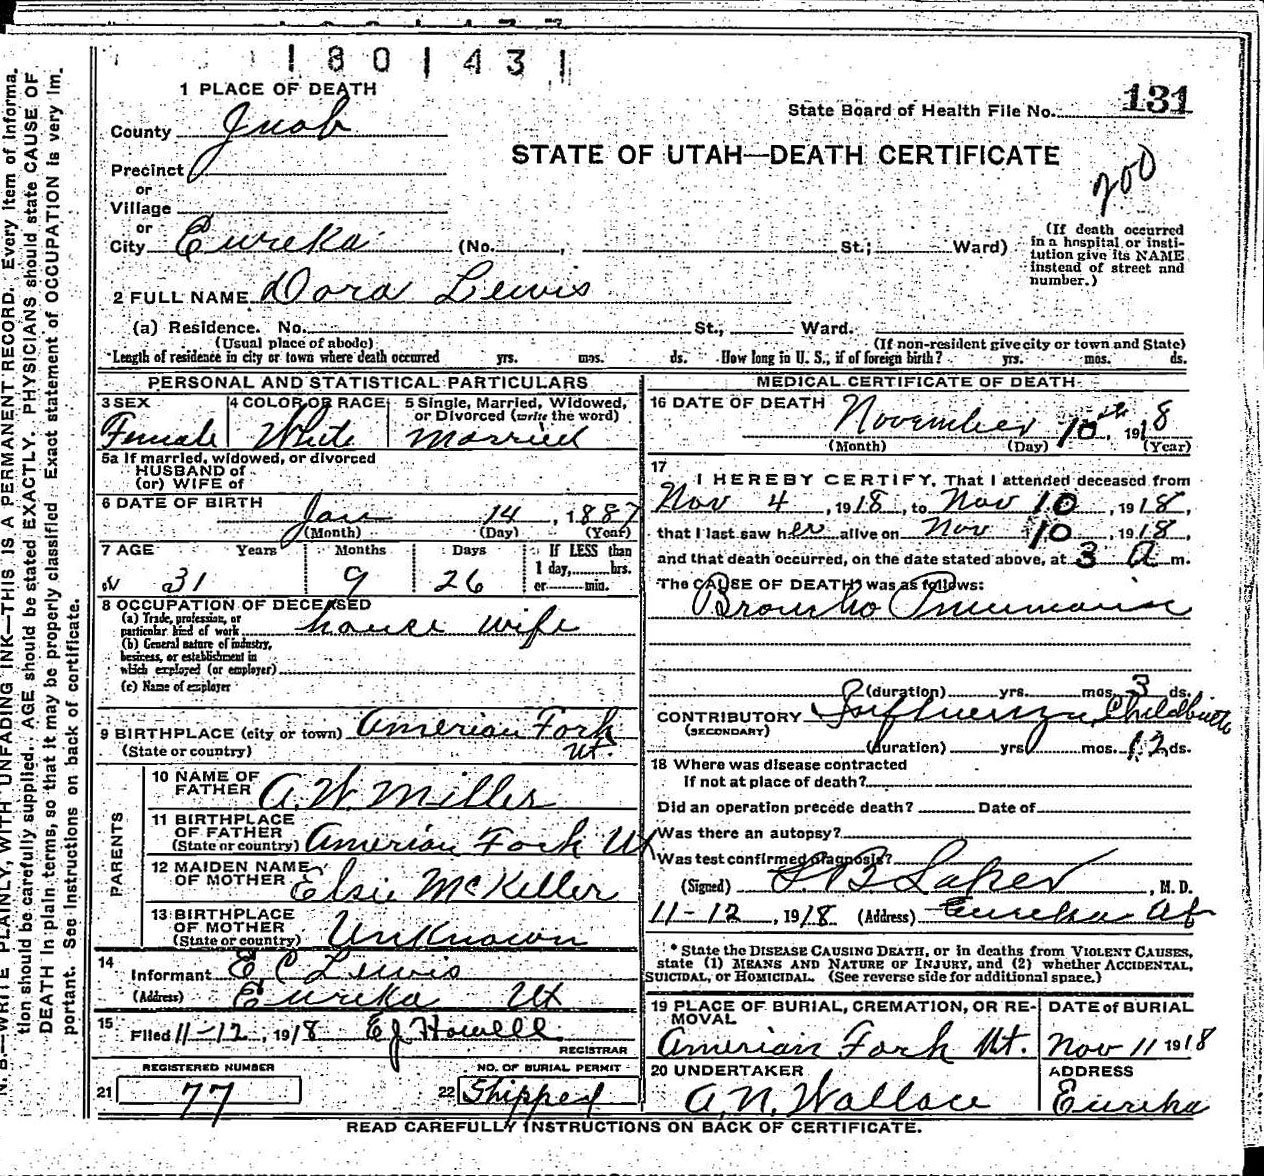 1801431
1 PLACE OF DEATH
State Board of Health File No. 131
County Juab
STATE OF UTAH—DEATH CERTIFICATE
200
Precinct
or
Village
or
City Eureka (No. , St.; Ward)
(If death occurred
in a hospital or insti-
tution give its NAME
instead of street and
number.)
2 FULL NAME Dora Lewis
(a) Residence. No. St., Ward.
(Usual place of abode) (If non-resident give city or town and State)
Length of residence in city or town where death occurred yrs. mos. ds. How long in U. S., if of foreign birth? yrs. mos. ds.
PERSONAL AND STATISTICAL PARTICULARS
3 SEX 4 COLOR OR RACE 5 Single, Married, Widowed,
or Divorced (write the word)
Female White Married
5a If married, widowed, or divorced
HUSBAND of
(or) WIFE of
6 DATE OF BIRTH
Jan 14, 1887
(Month) (Day) (Year)
7 AGE Years Months Days If LESS than
1 day, hrs.
or min.
31 9 26
8 OCCUPATION OF DECEASED
(a) Trade, profession, or
particular kind of work house wife
(b) General nature of industry,
business, or establishment in
which employed (or employer)
(c) Name of employer
9 BIRTHPLACE (city or town) Amerian Fork
(State or country) Ut.
PARENTS
10 NAME OF
FATHER A. W. Miller
11 BIRTHPLACE
OF FATHER
(State or country) Amerian Fork Ut
12 MAIDEN NAME
OF MOTHER Elsie McKeller
13 BIRTHPLACE
OF MOTHER
(State or country) Unknown
14
Informant E C Lewis
(Address) Eureka Ut
15
Filed 11-12, 1918 E J Howell
REGISTRAR
REGISTERED NUMBER NO. OF BURIAL PERMIT
21 77 22 Shipped
MEDICAL CERTIFICATE OF DEATH
16 DATE OF DEATH
November 10th, 1918
(Month) (Day) (Year)
17
I HEREBY CERTIFY, That I attended deceased from
Nov 4, 1918, to Nov 10, 1918,
that I last saw her alive on Nov 10, 1918,
and that death occurred, on the date stated above, at 3 a m.
The CAUSE OF DEATH* was as follows:
Broncho Pneumonia
(duration) yrs. mos. 3 ds.
CONTRIBUTORY Influenza, Childbirth
(SECONDARY)
(duration) yrs. mos. 12 ds.
18 Where was disease contracted
If not at place of death?
Did an operation precede death? Date of
Was there an autopsy?
Was test confirmed diagnosis?
(Signed) , M. D.
11-12, 1918 (Address) Eureka Ut
* State the DISEASE CAUSING DEATH, or in deaths from VIOLENT CAUSES,
state (1) MEANS AND NATURE OF INJURY, and (2) whether ACCIDENTAL,
SUICIDAL, or HOMICIDAL. (See reverse side for additional space.)
19 PLACE OF BURIAL, CREMATION, OR RE-
MOVAL
DATE of BURIAL
Amerian Fork Ut. Nov 11 1918
20 UNDERTAKER ADDRESS
A. N. Wallace Eureka
READ CAREFULLY INSTRUCTIONS ON BACK OF CERTIFICATE.
N. B.—WRITE PLAINLY, WITH UNFADING INK—THIS IS A PERMANENT RECORD. Every item of informa-
tion should be carefully supplied. AGE should be stated EXACTLY. PHYSICIANS should state CAUSE OF
DEATH in plain terms, so that it may be properly classified. Exact statement of OCCUPATION is very im-
portant. See instructions on back of certificate.